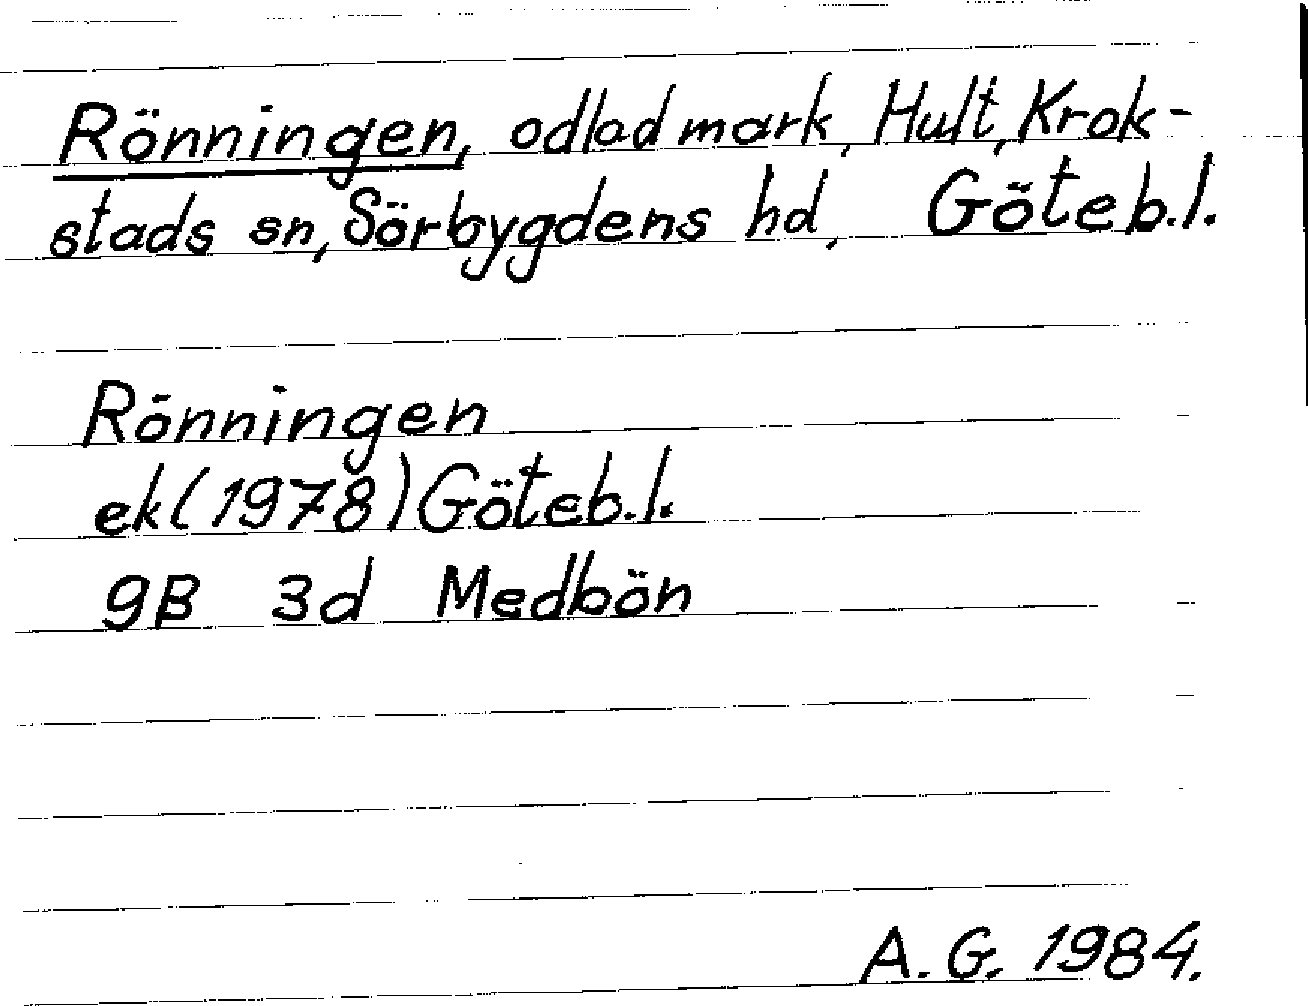 Rönningen, odlad mark, Hult, Krok-
stads sn, Sörbygdens hd, Göteb.l.
Rönningen
ek (1978) Göteb.l.
9B 3d Medbön
A.G. 1984.